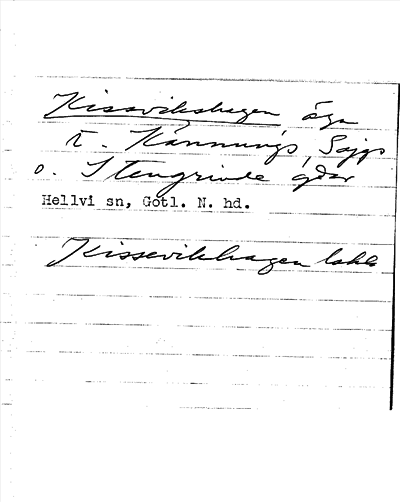 Kissvikshagen, äga
t. Kännungs, Sajgs
o. Stengrinde ägor
Hellvi sn, Gotl. N. hd.
Kissevikhagen